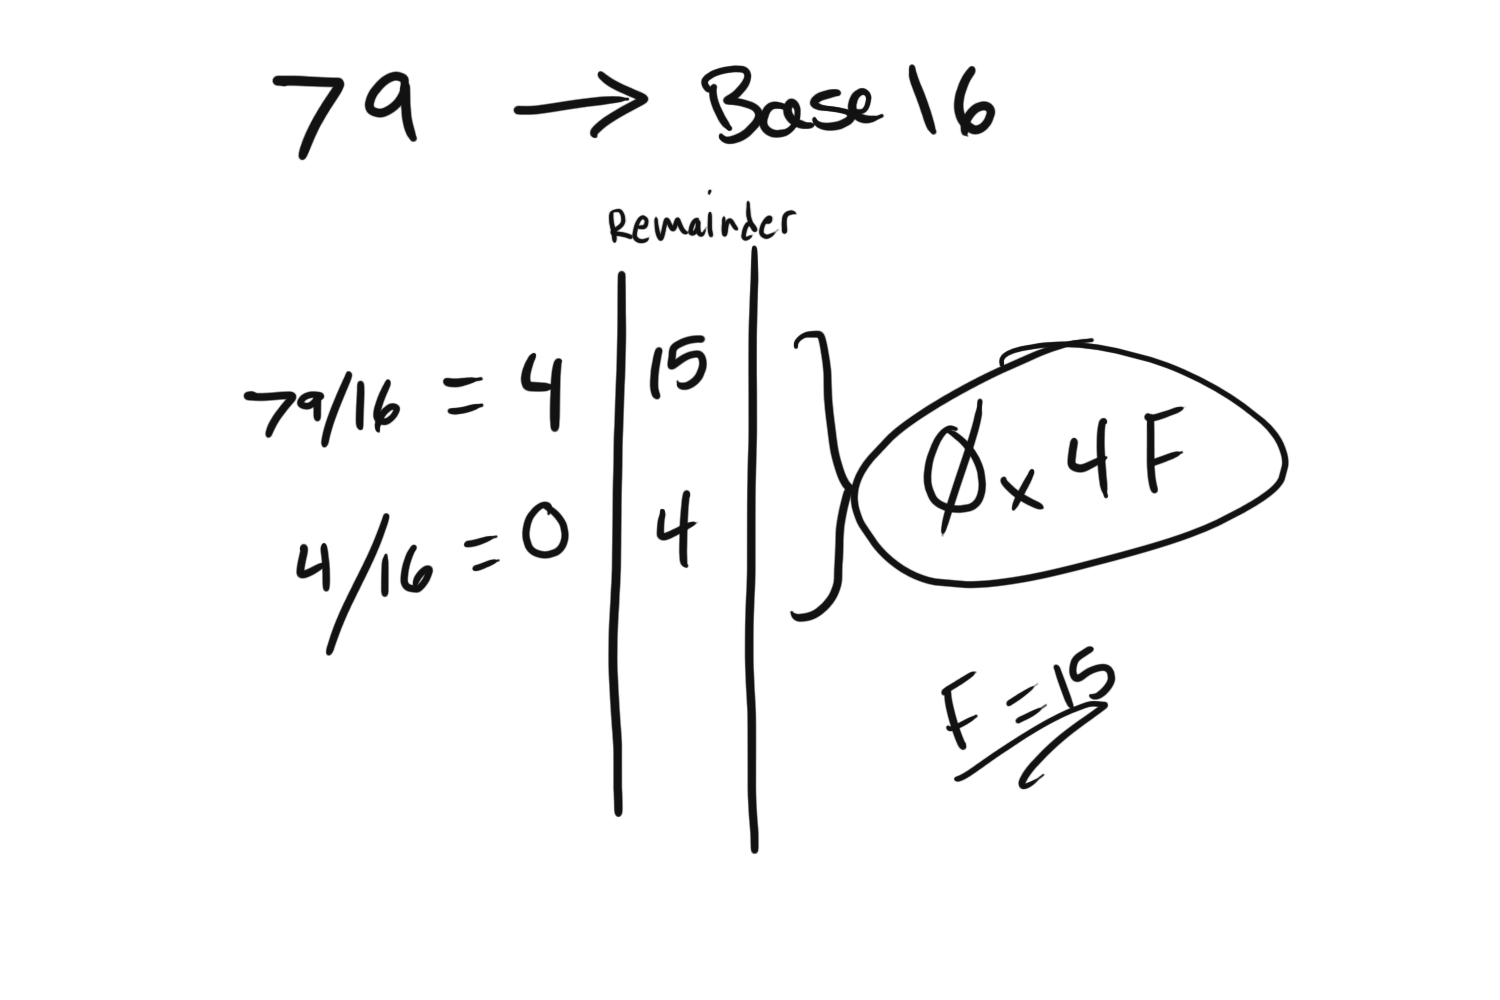 79 → Base 16
Remainder
79/16 = 4 | 15
4/16 = 0 | 4
0x4F
F = 15